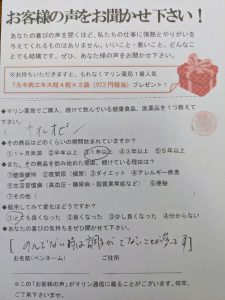 お客様の声をお聞かせ下さい！
あなたの喜びの声を聞くほど、私たちの仕事に情熱とやりがいを
与えてくれるものはありません。いいこと・悪いこと、どんなこ
とでも結構です。ぜひ、あなた様の声をお聞かせ下さい。
※お持ちいただきますと、もれなくマリン薬局１番人気
「カキ肉エキス粒４粒×３袋（972円相当）プレゼント
◆マリン薬局でご購入、続けて飲んでいる健康食品、医薬品を１つ教えて
下さい。
オルオピン
◆その商品はどのくらいの期間飲まれていますか？
①１ヶ月未満 ②半年以上 ③１年以上 ④３年以上 ⑤５年以上
◆また、その商品を飲み始めた理由、続けている理由は？
①健康維持 ②夜間尿（頻尿）③ダイエット ④アレルギー疾患
⑤生活習慣病（高血圧・糖尿病・脂質異常症など） ⑥便秘
⑦その他（
◆服用してみて変化はどうですか？
①とても良くなった ②良くなった ③少し良くなった ④分からない
◆あなたの喜びの気持ちをぜひ聞かせて下さい。
のんでない時は調子がでないことが多いです
お名前（ペンネーム） ご住所
☆この「お客様の声」がマリン通信に載ることがございます。何卒、
ご了承下さいませ。